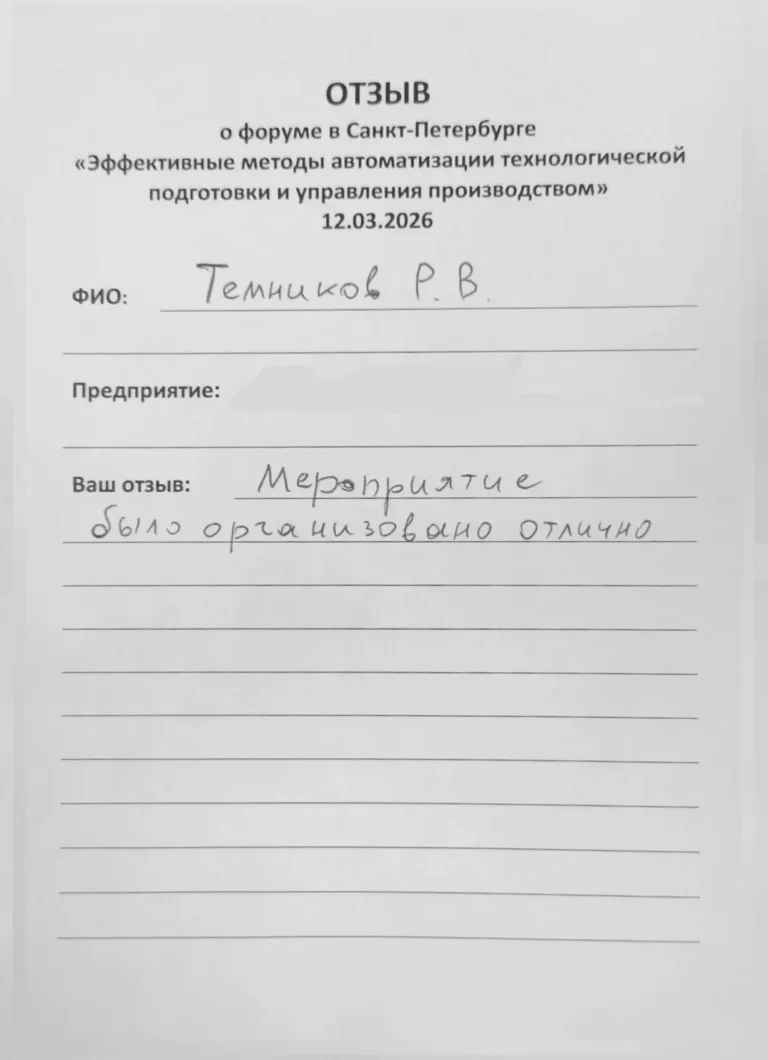 ОТЗЫВ
о форуме в Санкт-Петербурге
«Эффективные методы автоматизации технологической
подготовки и управления производством»
12.03.2026
ФИО: Темников Р. В.
Предприятие:
Ваш отзыв: Мероприятие
было организовано отлично